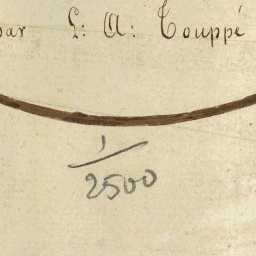 par L: A: Touppé
1/2500